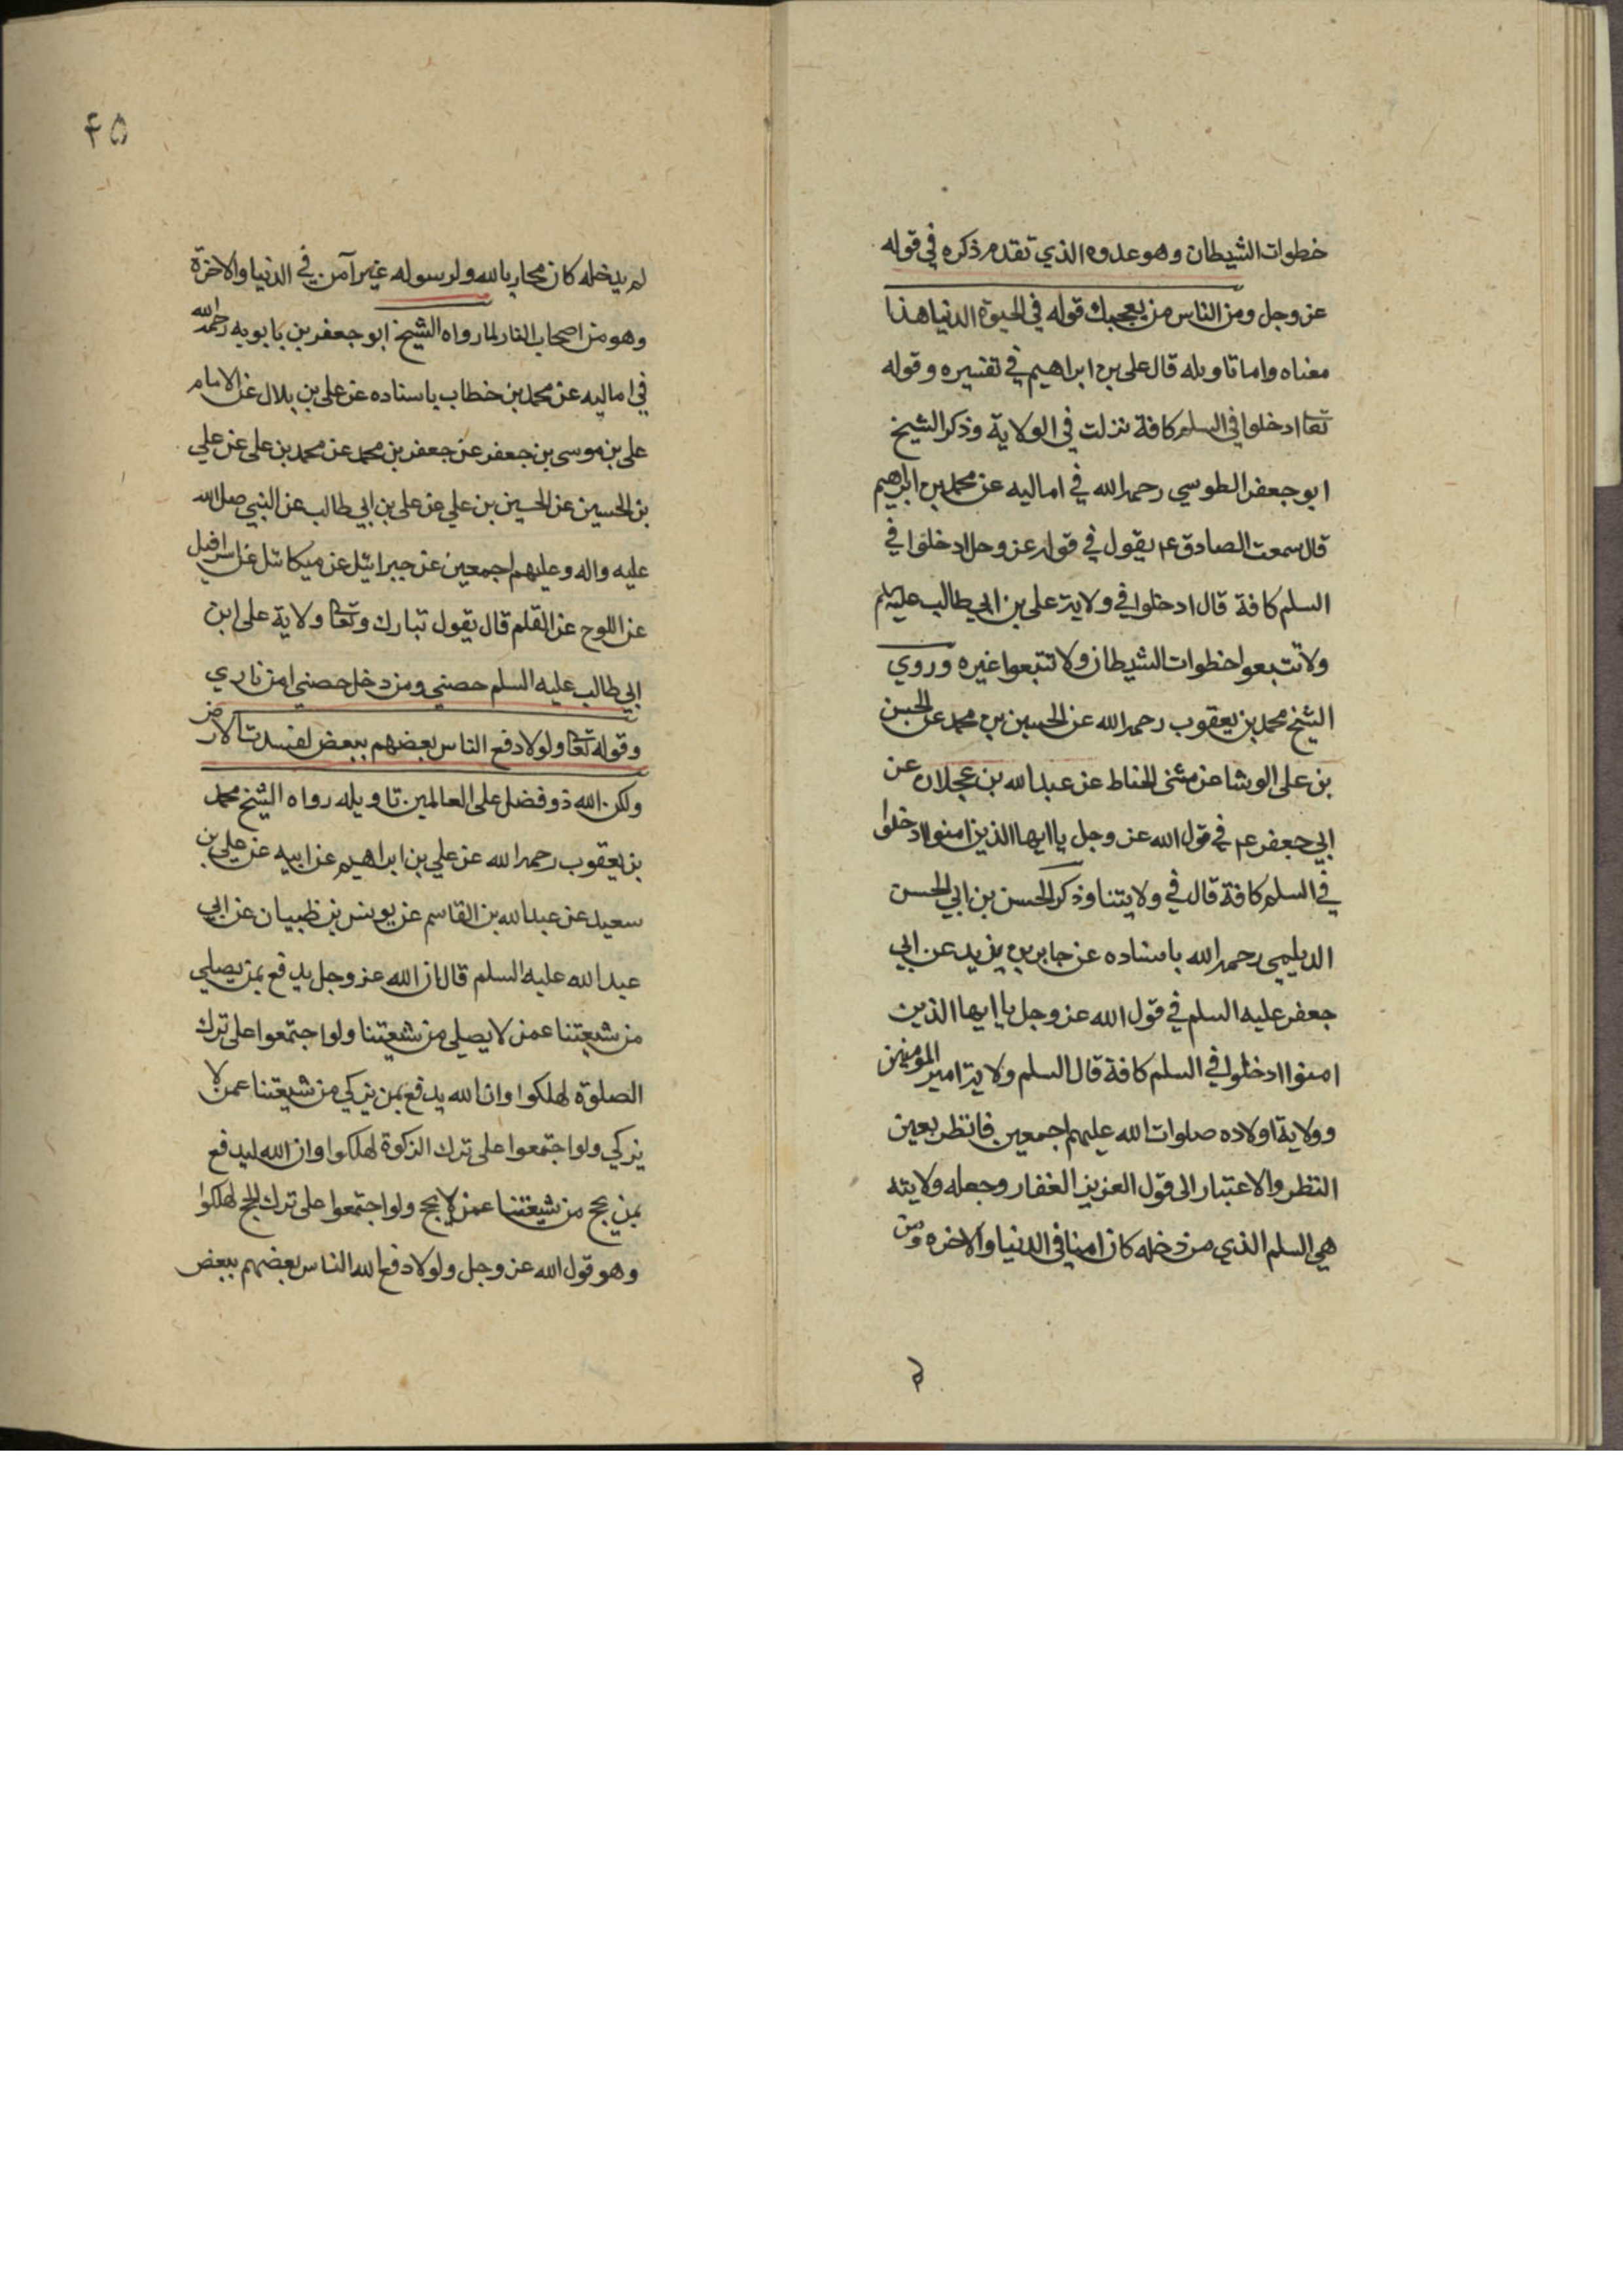 خطوات الشيطان وهو عدوه الذي تقدم ذكره في قوله
عز وجل ومن الناس من يعجبك قوله في الحيوة الدنيا هذا
معناه واما تاويله قال على بن ابراهيم في تفسيره وقوله
تعا ادخلوا في السلم كافة نزلت في الولاية وذكر الشيخ
ابو جعفر الطوسي رحمه الله في اماليه عن محمد بن ابراهيم
قال سمعت الصادق ع م يقول في قوله عز وجل ادخلوا في
السلم كافة قال ادخلوا في ولاية على بن ابي طالب عليه السلم
ولا تتبعوا خطوات الشيطان ولا تتبعوا غيره وروي
الشيخ محمد بن يعقوب رحمه الله عن الحسين بن محمد عن الحسن
بن على الوشا عن مثنى الحناط عن عبد الله بن عجلان عن
ابي جعفر ع م في قول الله عز وجل يا ايها الذين امنوا ادخلوا
في السلم كافة قال في ولايتنا وذكر الحسن بن ابي الحسن
الديلمي رحمه الله باسناده عن جابر بن يزيد عن ابي
جعفر عليه السلم في قول الله عز وجل يا ايها الذين
امنوا ادخلوا في السلم كافة قال السلم ولاية امير المومنين
وولاية اولاده صلوات الله عليهم اجمعين فانظر بعين
النظر والاعتبار الى قول العزيز الغفار وجعله ولايته
هي السلم الذي من دخله كان امنا في الدنيا والاخره ومن
۴۵
لم يدخله كان محاربا لله ولرسوله غير آمن في الدنيا والاخرة
وهو من اصحاب النار لما رواه الشيخ ابو جعفر بن بابويه رحمه الله
في اماليه عن محمد بن خطاب باسناده عن على بن بلال عن الامام
على بن موسى بن جعفر عن جعفر بن محمد عن محمد بن على عن علي
بن الحسين عن الحسين بن علي عن على بن ابي طالب عن النبي صلى الله
عليه واله وعليهم اجمعين عن جبرائيل عن ميكائيل عن اسرافيل
عن اللوح عن القلم قال يقول تبارك وتعا ولاية على ابن
ابي طالب عليه السلم حصني ومن دخل حصني امن ناري
وقوله تعا ولولا دفع الناس بعضهم ببعض لفسدت الارض
ولكن الله ذو فضل على العالمين تاويله رواه الشيخ محمد
بن يعقوب رحمه الله عن علي بن ابراهيم عن ابيه عن علي بن
سعيد عن عبد الله بن القاسم عن يونس بن ظبيان عن ابي
عبد الله عليه السلم قال ان الله عز وجل يدفع بمن يصلي
من شيعتنا عمن لا يصلي من شيعتنا ولو اجتمعوا على ترك
الصلوة لهلكوا وان الله يدفع بمن يزكي من شيعتنا عمن لا
يزكي ولو اجتمعوا على ترك الزكوة لهلكوا وان الله ليدفع
بمن يحج من شيعتنا عمن لا يحج ولو اجتمعوا على ترك الحج لهلكوا
وهو قول الله عز وجل ولولا دفع الله الناس بعضهم ببعض